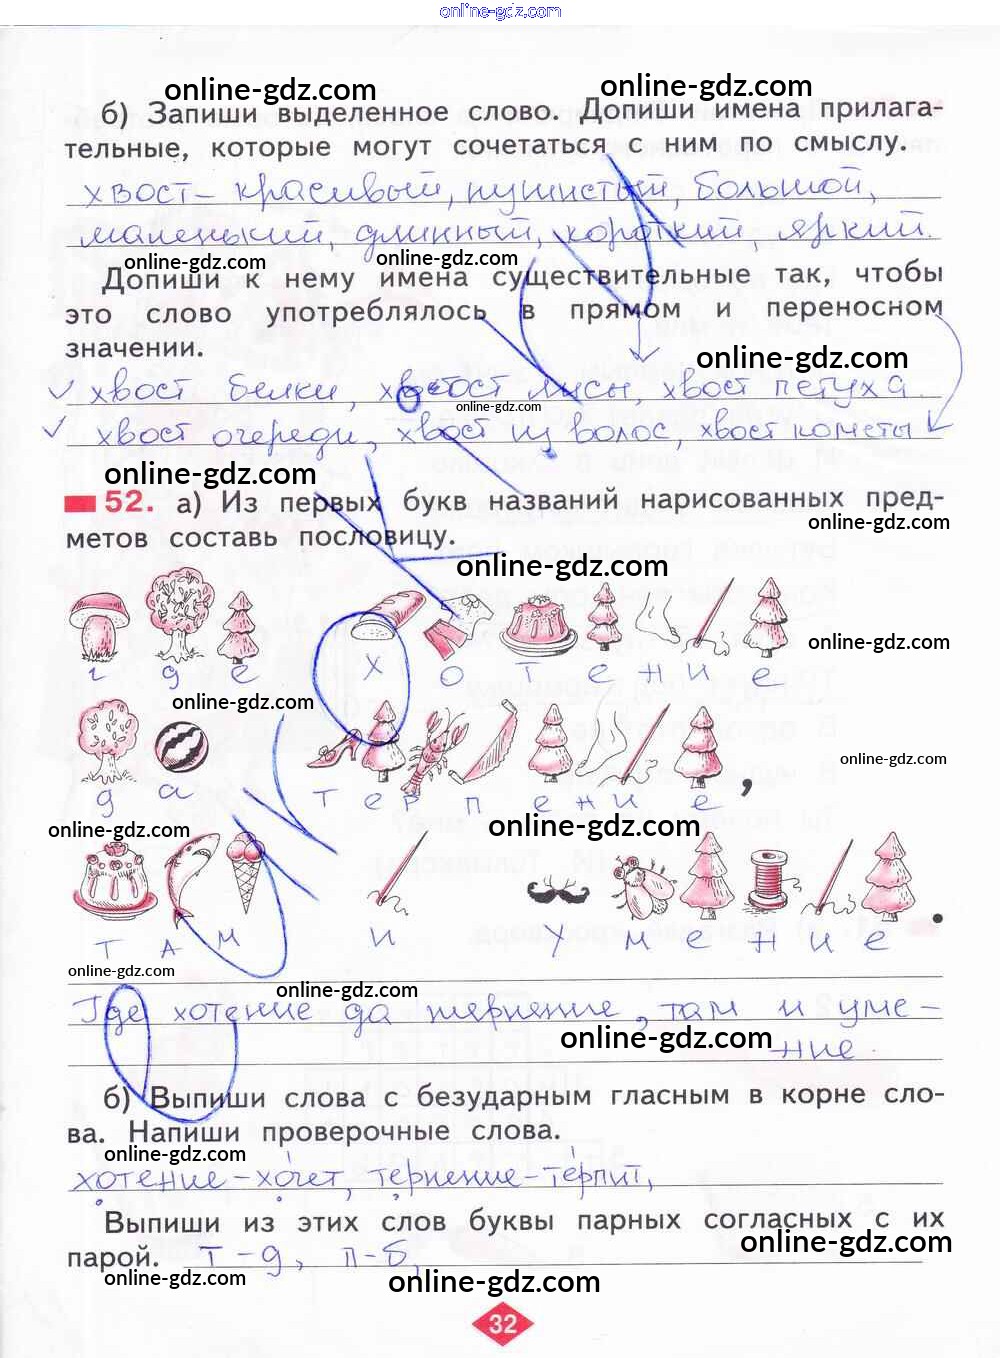 online-gdz.com
online-gdz.com online-gdz.com
б) Запиши выделенное слово. Допиши имена прилага-
тельные, которые могут сочетаться с ним по смыслу.
хвост – красивый, пушистый, большой,
маленький, длинный, короткий, яркий.
online-gdz.com online-gdz.com
Допиши к нему имена существительные так, чтобы
это слово употреблялось в прямом и переносном
значении.
online-gdz.com
хвост белки, хвост лисы, хвост петуха
online-gdz.com
хвост очереди, хвост из волос, хвост кометы
online-gdz.com
52. а) Из первых букв названий нарисованных пред-
online-gdz.com
метов составь пословицу.
online-gdz.com
online-gdz.com
г д е х о т е н и е
online-gdz.com
online-gdz.com
д а т е р п е н и е ,
online-gdz.com online-gdz.com
т а м и у м е н и е .
online-gdz.com
online-gdz.com
Где хотение да терпение, там и уме-
online-gdz.com
ние.
б) Выпиши слова с безударным гласным в корне сло-
ва. Напиши проверочные слова.
online-gdz.com
хотение – хочет, терпение – терпит,
Выпиши из этих слов буквы парных согласных с их
online-gdz.com
парой. т – д, п – б,
online-gdz.com online-gdz.com
32